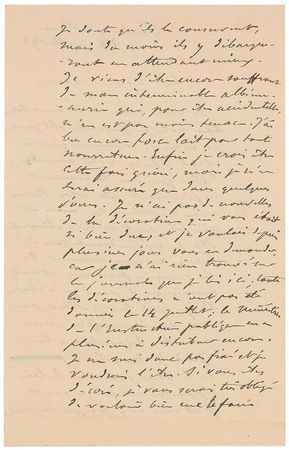 Je doute qu'ils le conservent,
mais du moins ils y débarque-
ront en attendant mieux.
Je viens d'être encore souffrant
de mon interminable albumi-
nurie qui, pour être accidentelle
n'en est pas moins tenace. J'ai
bu encore force lait pour toute
nourriture. Enfin je crois être
cette fois guéri, mais je n'en
serai assuré que dans quelques
jours. Je n'ai pas de nouvelles
de la décoration qui vous était
si bien due, et je voulais depuis
plusieurs jours vous en demander
car je n'ai rien trouvé sur
le journal que je lis ici, toutes
les décorations n'ont pas été
données le 14 juillet, le ministère
de l'Instruction publique en a
plusieurs à distribuer encore.
Je ne suis donc pas fixé et je
voudrais l'être. Si vous êtes
décoré, je vous serai très obligé
de vouloir bien me le faire